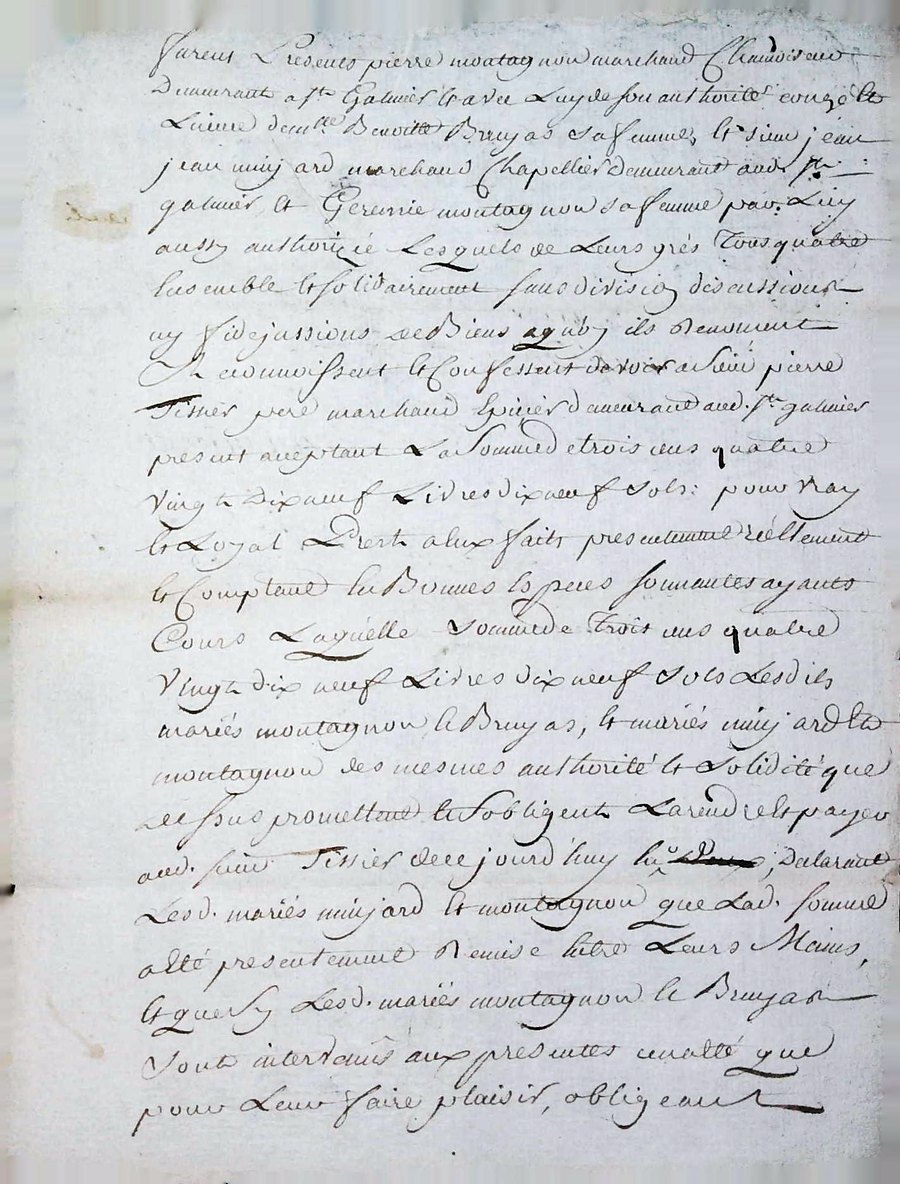 furent Presents pierre montagnon marchand Chamoiseur
Demeurant a St. Galmier et avec Luy de son authorité congé et
Licence demlle Benoitte Bruyas sa femme, et sieur jean
jean minjard marchand Chapellier demeurant aud. St.
galmier, et Geremie montagnon sa femme par Luy
aussy authorizée Lesquels de Leurs grés Tous quatre
Ensemble et solidairement sans division discussion
ny fidejussions de Biens a quoy ils Renoncent
Reconnoissent et Confessent devoir a sieur pierre
Tissier pere marchand Epicier demeurant aud. St. galmier
present acceptant La Somme de trois cens quatre
Vingt Dix neuf Livres dix neuf sols: pour vray
et Loyal Prest a eux fait presentement réellement
et Comptant En Bonnes Especes sonnantes ayants
Cours Laquelle somme de Trois cens quatre
Vingt dix neuf Livres dix neuf sols Lesdits
mariés montagnon et Bruyas, et mariés minjard et
montagnon des mesmes authorité et solidité que
dessus promettent et s'obligent La rendre et payer
aud. sieur Tissier de ce jourd'huy En , declarant
Lesd. mariés minjard et montagnon que Lad. somme
a Eté presentement Remise Entre Leurs Mains,
et que sy Lesd. mariés montagnon et Bruyas
sont intervenus aux presentes ce n'a Eté que
pour Leur faire plaisir, obligeant